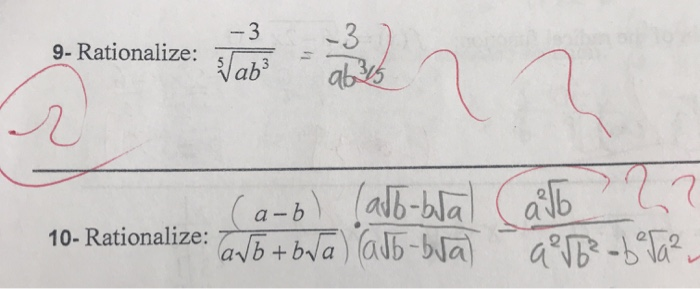 9- Rationalize: -3/⁵√ab³ = -3/ab^3/5
10- Rationalize: (a-b)/(a√b + b√a) · (a√b-b√a)/(a√b-b√a) - a²√b/a²√b² - b²√a²